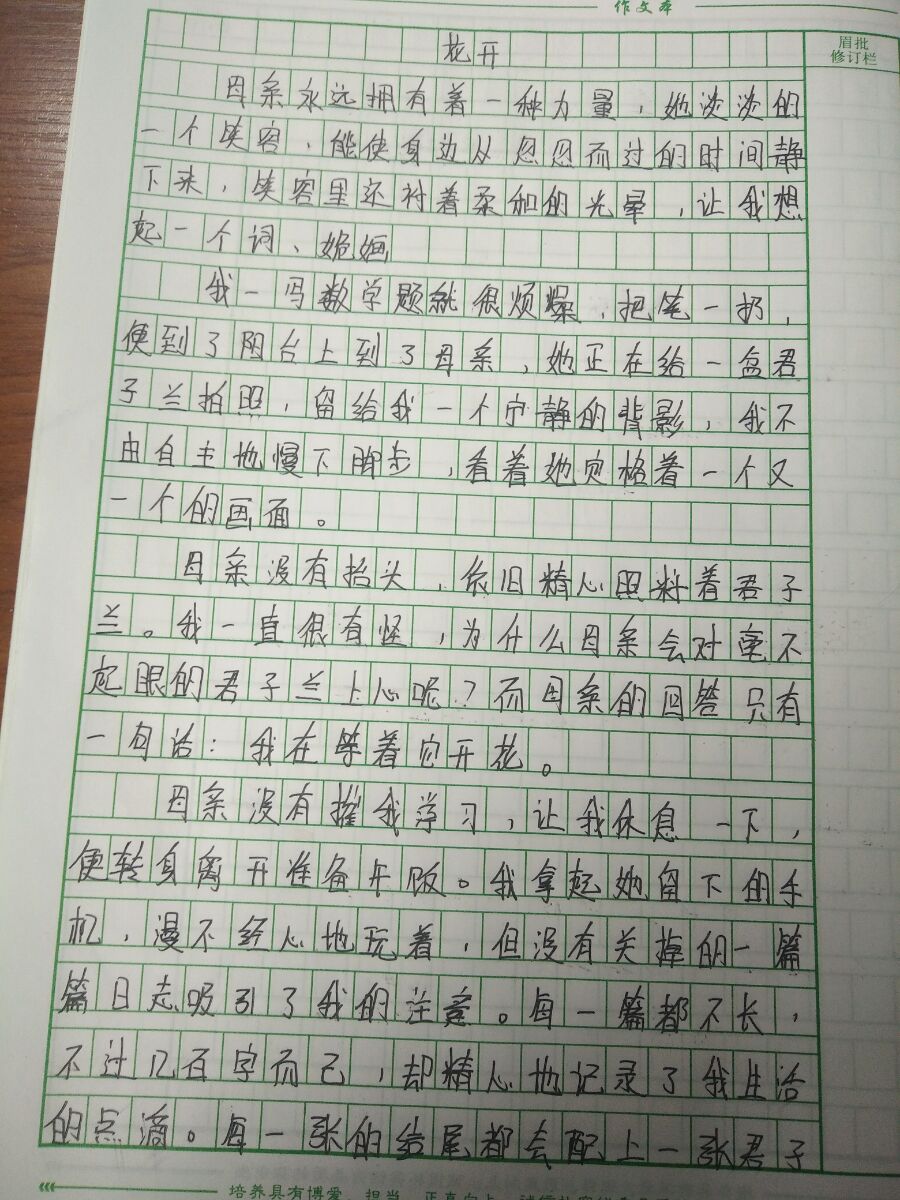 作文本
眉批
修订栏
花开
母亲永远拥有着一种力量，她淡淡的
一个笑容，能使身边从忽忽而过的时间静
下来，笑容里还衬着柔和的光晕，让我想
起一个词、姽婳
我一写数学题就很烦燥，把笔一扔，
便到了阳台上到了母亲，她正在给一盆君
子兰拍照，留给我一个宁静的背影，我不
由自主地慢下脚步，看着她定格着一个又
一个的画面。
母亲没有抬头，依旧精心照料着君子
兰。我一直很有怪，为什么母亲会对毫不
起眼的君子兰上心呢？而母亲的回答只有
一句话：我在等着它开花。
母亲没有催我学习，让我休息一下，
便转身离开准备午饭。我拿起她留下的手
机，漫不经心地玩着，但没有关掉的一篇
篇日志吸引了我的注意。每一篇都不长，
不过几百字而已，却精心地记录了我生活
的点滴。每一张的结尾都会配上一张君子
培养具有博爱、担当、正直向上、